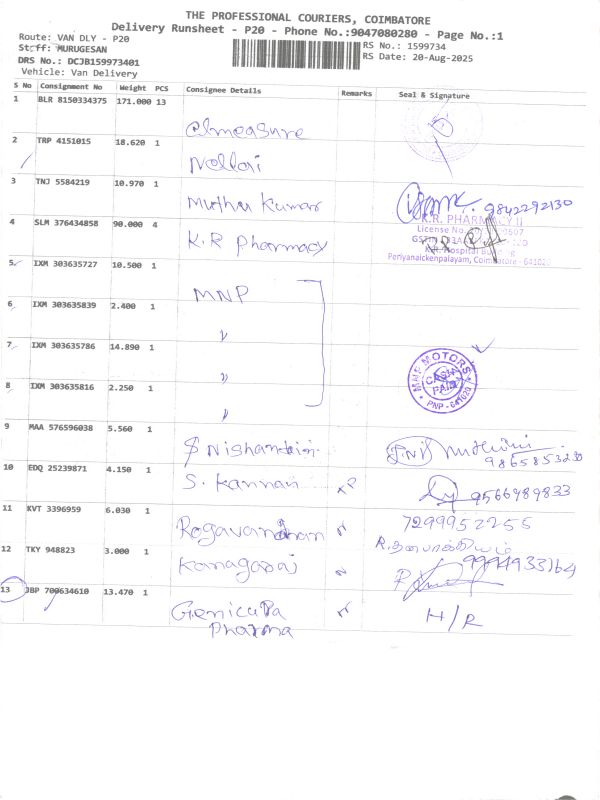 THE PROFESSIONAL COURIERS, COIMBATORE
Delivery Runsheet - P20 - Phone No.:9047080280 - Page No.:1
Route: VAN DLY - P20
RS No.: 1599734
Staff: MURUGESAN
RS Date: 20-Aug-2025
DRS No.: DCJB159973401
Vehicle: Van Delivery
S No Consignment No Weight PCS Consignee Details Remarks Seal & Signature
1 BLR 8150334375 171.000 13
elmeasure
2 TRP 4151015 18.620 1
Nellai
3 TNJ 5584219 10.970 1
Muthu Kumar
9842292130
4 SLM 376434858 90.000 4
K.R Pharmacy
K.R. PHARMACY II
License No.
Periyanaickenpalayam, Coimbatore - 641020
5 IXM 303635727 10.500 1
MNP
6 IXM 303635839 2.400 1
"
7 IXM 303635786 14.890 1
"
MNP MOTORS
CASH PAID
PNP - 641020
8 IXM 303635816 2.250 1
"
9 MAA 576596038 5.560 1
9865853230
10 EDQ 25239871 4.150 1
S. Kannan
9566989833
11 KVT 3396959 6.030 1
7299952255
12 TKY 948823 3.000 1
9994933164
13 JBP 700634610 13.470 1
Pharma
H/R